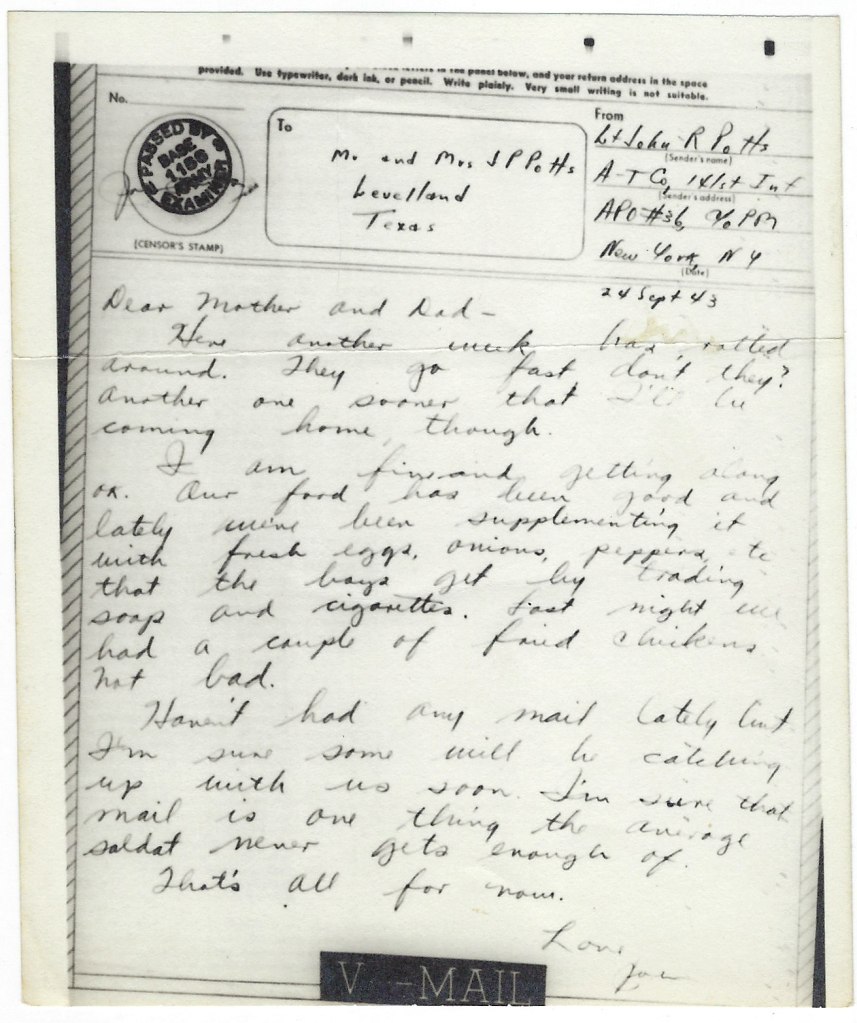 provided. Use typewriter, dark ink, or pencil. Write plainly. Very small writing is not suitable.
in the panel below, and your return address in the space
No.
PASSED BY
BASE
1166
ARMY
EXAMINER
(CENSOR'S STAMP)
To
Mr. and Mrs J P Potts
Levelland
Texas
From
Lt John R Potts
(Sender's name)
A-T Co, 141st Inf
(Sender's address)
APO #36, c/o PM
New York, N Y
(Date)
24 Sept 43
Dear Mother and Dad-
Here another week has rolled
around. They go fast don't they?
Another one sooner that I'll be
coming home, though.
I am fine and getting along
OK. Our food has been good and
lately we've been supplementing it
with fresh eggs, onions, peppers, etc
that the boys get by trading
soap and cigarettes. Last night we
had a couple of fried chickens
not bad.
Haven't had any mail lately but
I'm sure some will be catching
up with us soon. I'm sure that
mail is one thing the average
soldat never gets enough of.
That's all for now.
Love
V -MAIL